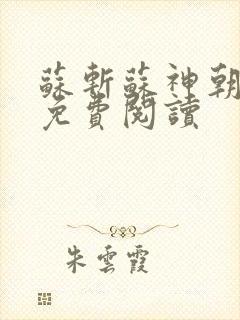 蘇斬蘇神朝
免費閱讀
朱雲霞